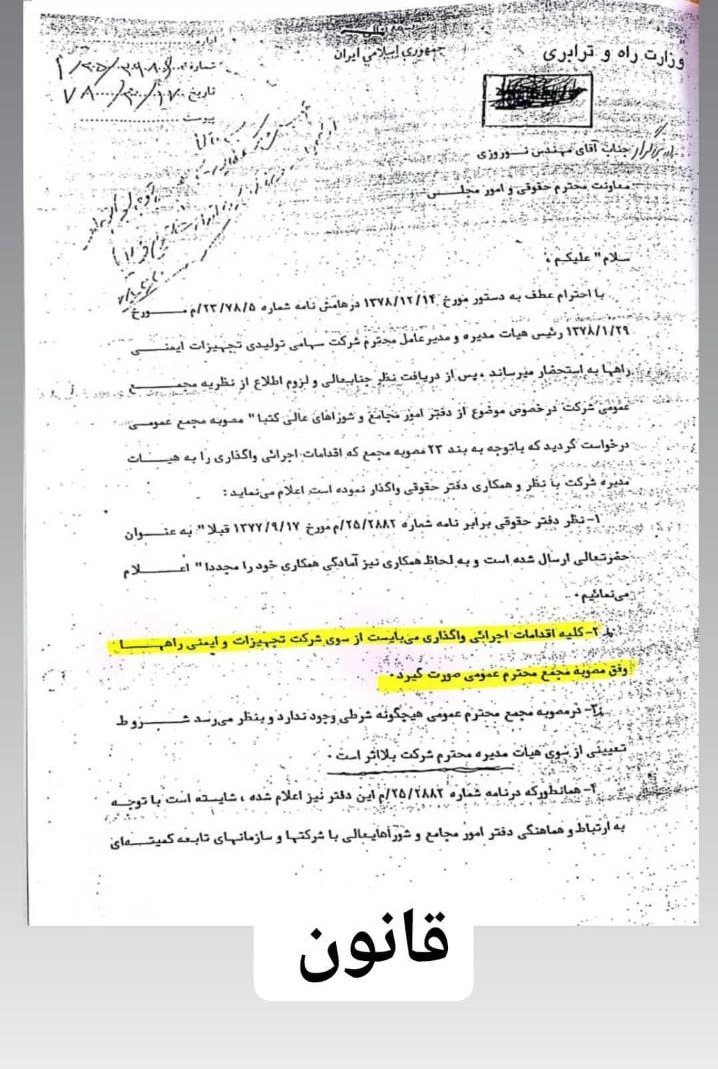 جمهوری اسلامی ایران
وزارت راه و ترابری
اداره
شماره
تاریخ
پیوست
جناب آقای مهندس نوروزی
معاونت محترم حقوقی و امور مجلس
سلام" علیکم ،
با احترام عطف به دستور مورخ ۱۳۷۸/۱۲/۱۴ درهامش نامه شماره ۲۳/۷۸/۵/م مورخ
۱۳۷۸/۱/۲۹ رئیس هیات مدیره و مدیرعامل محترم شرکت سهامی تولیدی تجهیزات ایمنی
راهها به استحضار میرساند ، پس از دریافت نظر جنابعالی و لزوم اطلاع از نظریه مجمع
عمومی شرکت درخصوص موضوع از دفتر امور مجامع و شوراهای عالی کتبا" مصوبه مجمع عمومی
درخواست گردید که باتوجه به بند ۲۳ مصوبه مجمع که اقدامات اجرائی واگذاری را به هیات
مدیره شرکت با نظر و همکاری دفتر حقوقی واگذار نموده است اعلام می‌نماید :
۱- نظر دفتر حقوقی برابر نامه شماره ۲۵/۲۸۸۲/م مورخ ۱۳۷۷/۹/۱۷ قبلا" به عنوان
حضرتعالی ارسال شده است و به لحاظ همکاری نیز آمادگی همکاری خود را مجددا" اعلام
می‌نمائیم .
۲- کلیه اقدامات اجرائی واگذاری می‌بایست از سوی شرکت تجهیزات و ایمنی راهها
وفق مصوبه مجمع محترم عمومی صورت گیرد .
۳- درمصوبه مجمع محترم عمومی هیچگونه شرطی وجود ندارد و بنظر می‌رسد شروط
تعیینی از سوی هیات مدیره محترم شرکت بلااثر است .
۴- همانطورکه درنامه شماره ۲۵/۲۸۸۲/م این دفتر نیز اعلام شده ، شایسته است با توجه
به ارتباط و هماهنگی دفتر امور مجامع و شوراهایعالی با شرکتها و سازمانهای تابعه کمیته‌ای
قانون